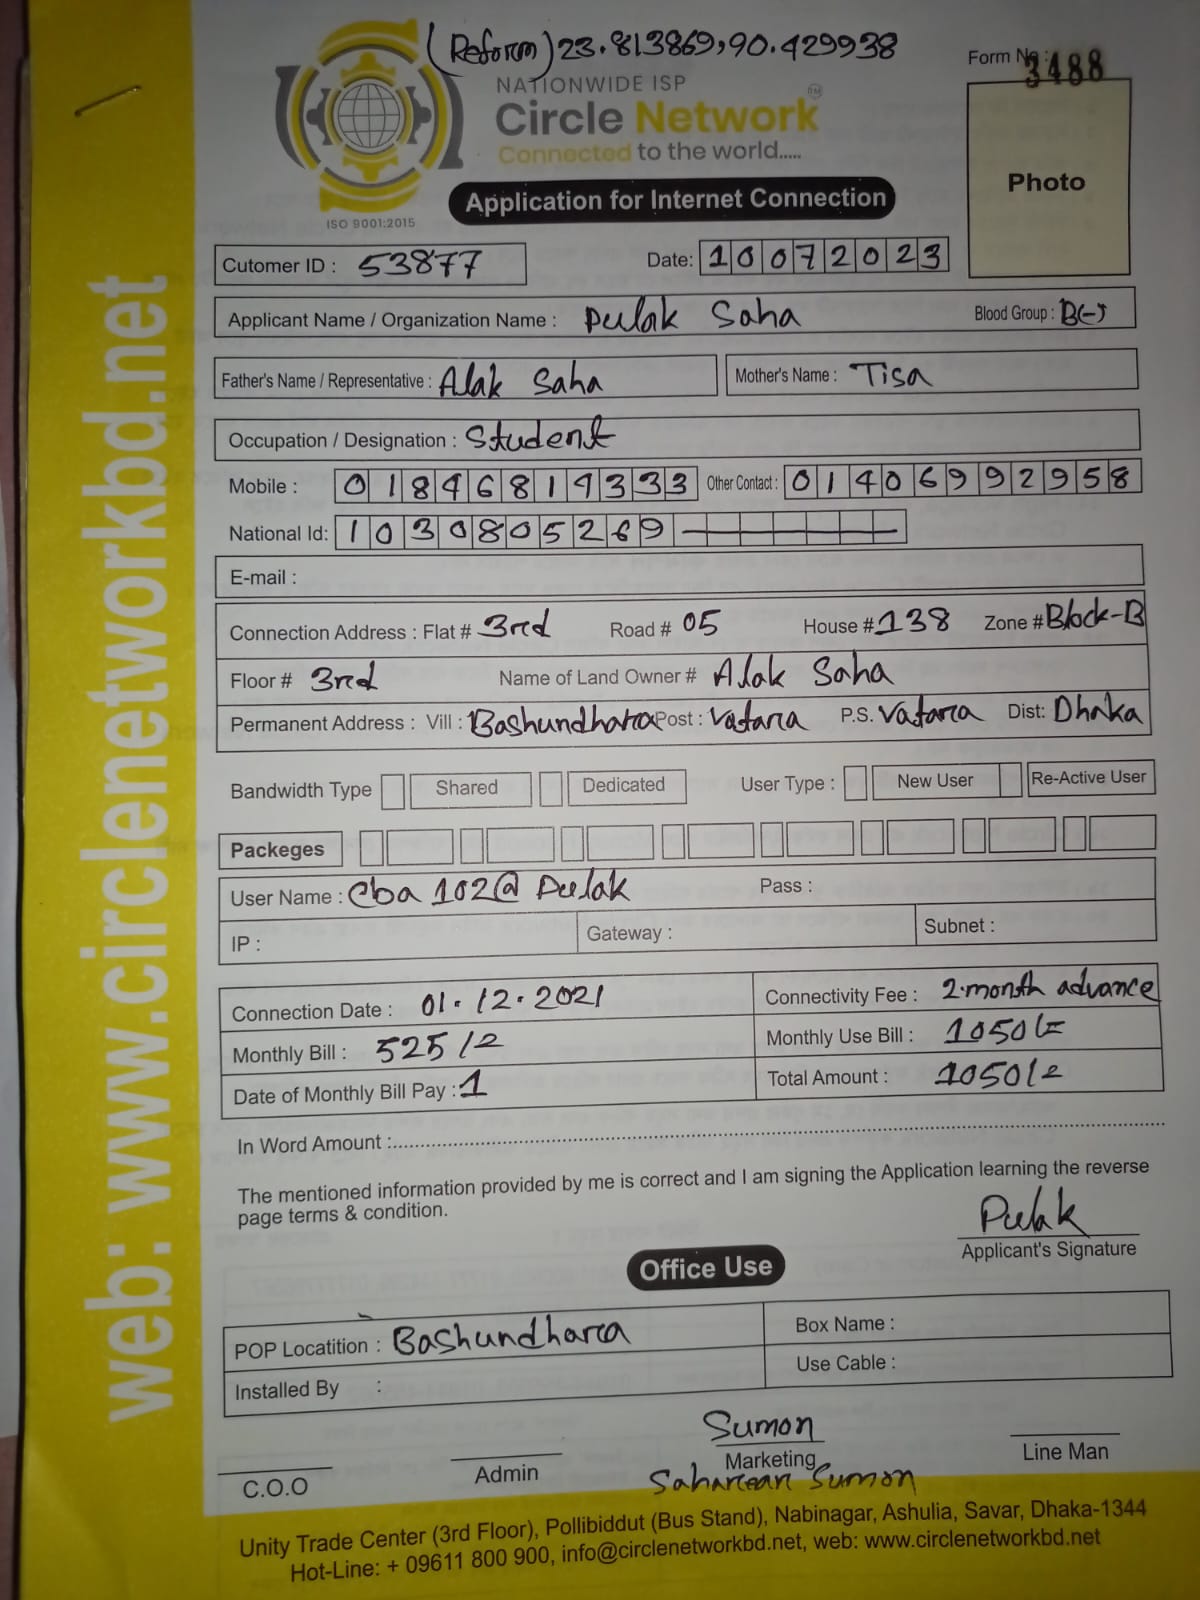 (Reform) 23.813869,90.429938
Form No : 3488
NATIONWIDE ISP
Circle Network TM
Connected to the world.....
ISO 9001:2015
Application for Internet Connection
Photo
Cutomer ID : 53877 Date: 10072023
Applicant Name / Organization Name : Pulak Saha Blood Group : B(-)
Father's Name / Representative : Alak Saha Mother's Name : Tisa
Occupation / Designation : Student
Mobile : 01846814333 Other Contact : 01406992958
National Id: 1030805269
E-mail :
Connection Address : Flat # 3rd Road # 05 House # 138 Zone # Block-B
Floor # 3rd Name of Land Owner # Alak Saha
Permanent Address : Vill : Bashundhara Post : Vatara P.S. Vatara Dist: Dhaka
Bandwidth Type Shared Dedicated User Type : New User Re-Active User
Packeges
User Name : Cba 102@ Pulak Pass :
IP : Gateway : Subnet :
Connection Date : 01.12.2021 Connectivity Fee : 2 month advance
Monthly Bill : 525/= Monthly Use Bill : 1050/=
Date of Monthly Bill Pay : 1 Total Amount : 1050/=
In Word Amount :
The mentioned information provided by me is correct and I am signing the Application learning the reverse
page terms & condition.
Pulak
Applicant's Signature
Office Use
POP Locatition : Bashundhara Box Name :
Installed By : Use Cable :
Sumon
C.O.O Admin Marketing Line Man
Sumon
Unity Trade Center (3rd Floor), Pollibiddut (Bus Stand), Nabinagar, Ashulia, Savar, Dhaka-1344
Hot-Line: + 09611 800 900, info@circlenetworkbd.net, web: www.circlenetworkbd.net
web: www.circlenetworkbd.net